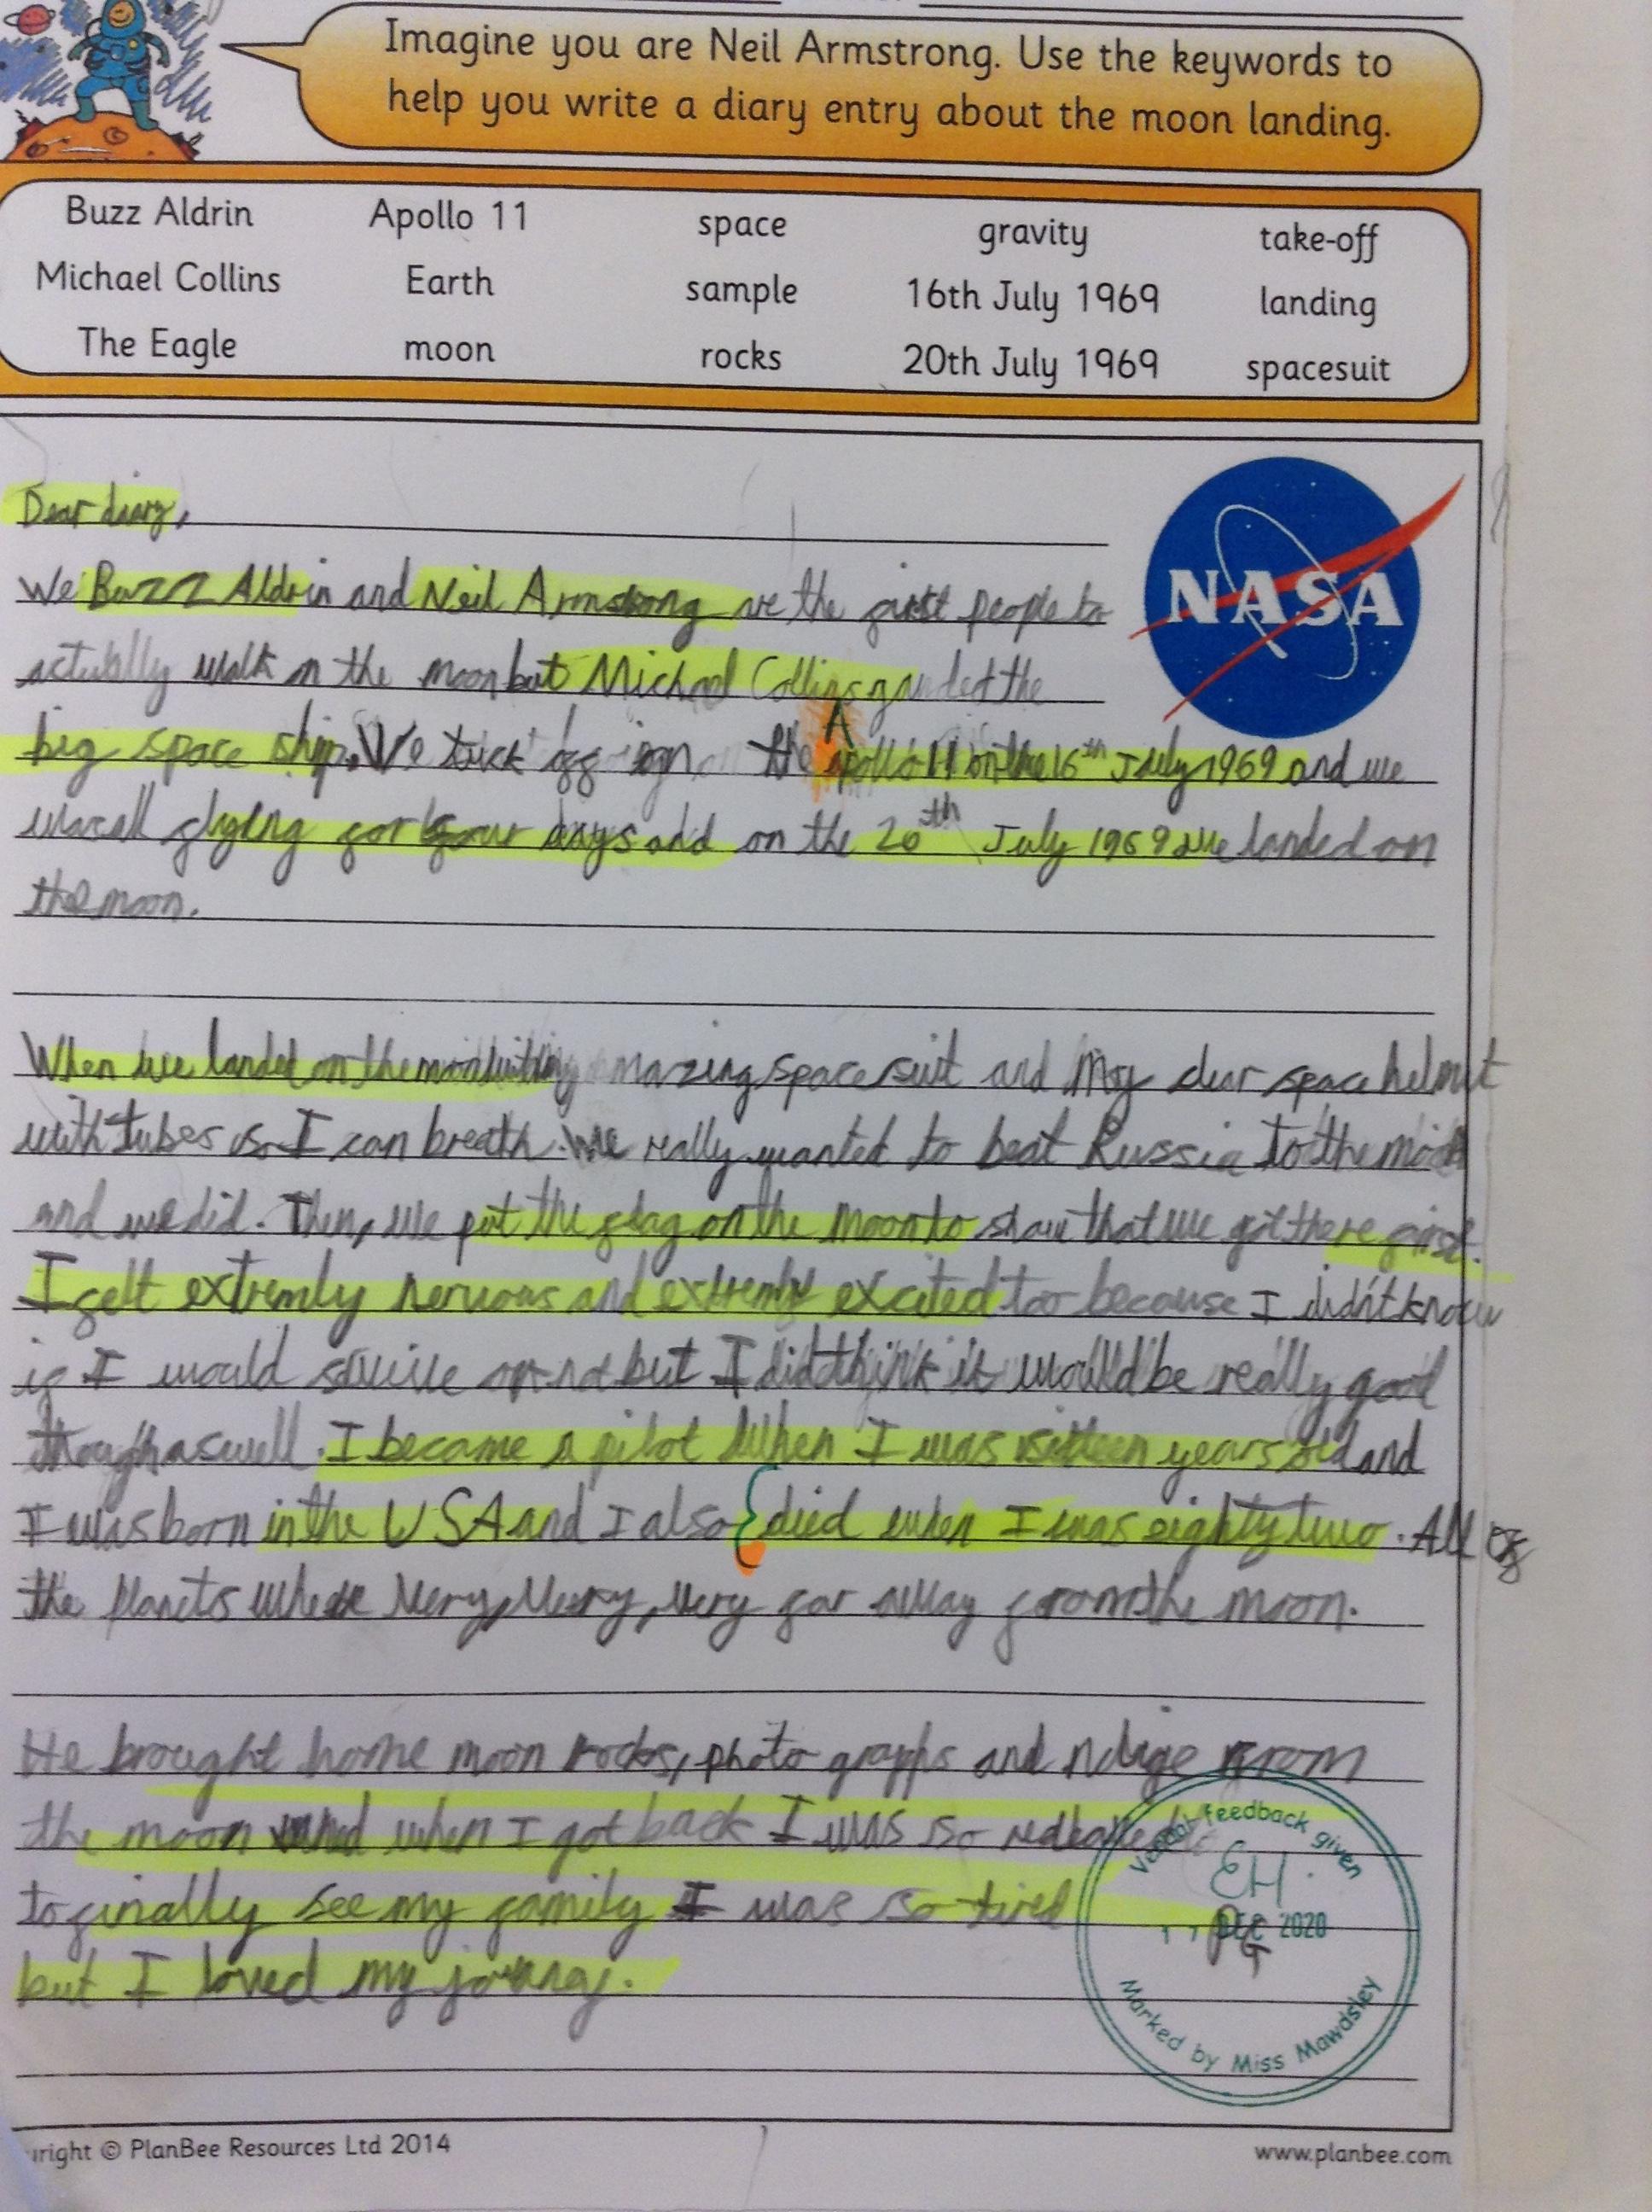 Imagine you are Neil Armstrong. Use the keywords to
help you write a diary entry about the moon landing.
Buzz Aldrin Apollo 11 space gravity take-off
Michael Collins Earth sample 16th July 1969 landing
The Eagle moon rocks 20th July 1969 spacesuit
NASA
Dear diary,
We Buzz Aldrin and Neil Armstrong are the first people to
actually walk on the moon but Michael Collins the
big space ship. We off the Apollo 11 on the 16th July 1969 and we
flying for four days and on the 20th July 1969 we landed on
the moon.
When we landed on the moon amazing space suit and my clear space helmet
with tubes so I can breath. We really wanted to beat Russia to the moon
and we did. Then, we put the flag on the moon to show that we got there first.
I felt extremly nervous and extremly excited too because I didn't know
if I would or not but I did think it would be really good
though as well. I became a pilot when I was sixteen years old and
I was born in the USA and I also died when I was eighty two. All of
the planets where very, very, very far away from the moon.
He brought home moon rocks, photo graphs and from
the moon and when I got back I was so
to finally see my family I was so tired
but I loved my journey.
Verbal feedback given
EH.
17 DEC 2020
PG
Marked by Miss Mawdsley
© PlanBee Resources Ltd 2014
www.planbee.com